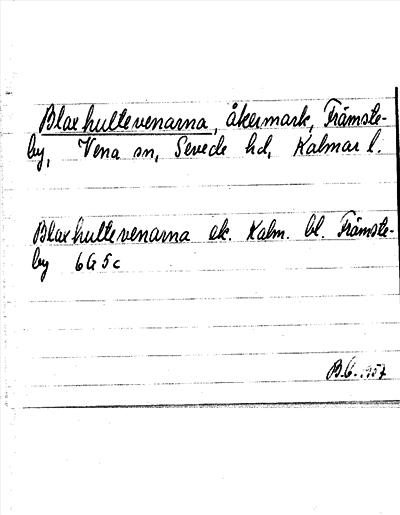 Blaxhultevenarna, åkermark, Främste-
by, Vena sn, Sevede hd, Kalmar l.
Blaxhultevenarna ek. Kalm. bl. Främste-
by 6G5c